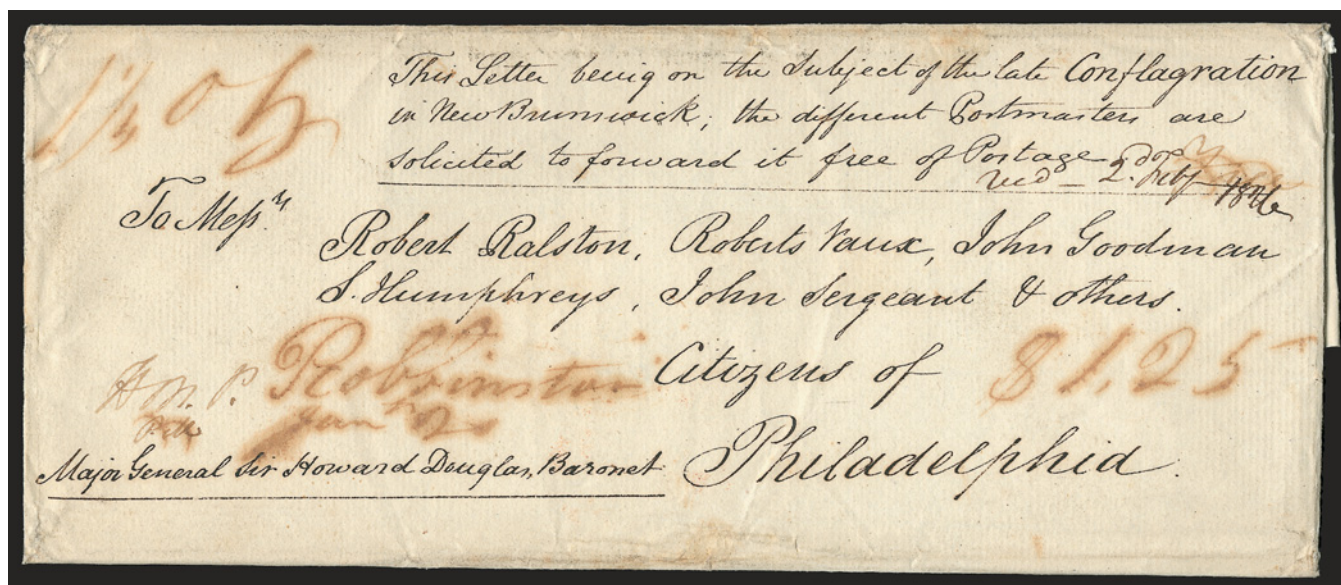 1 1/4 oz
This Letter being on the Subject of the late Conflagration
in New Brunswick, the different Postmasters are
solicited to forward it free of Postage
recd _ 2. Feby 1826
To Messrs
Robert Ralston, Roberts Vaux, John Goodman
S. Humphreys, John Sergeant & others.
Citizens of
$1,25
Robbinston
Jany
Major General Sir Howard Douglas, Baronet
Philadelphia.